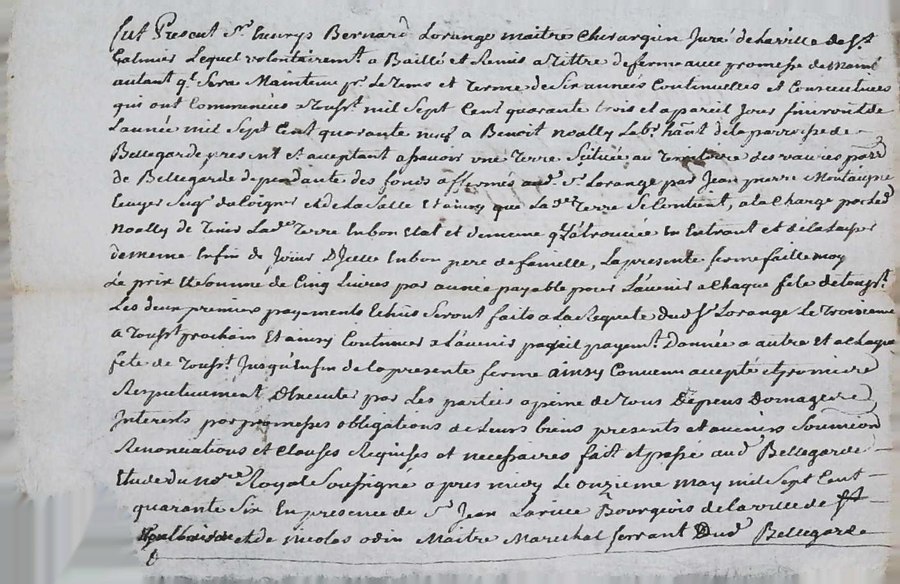 fut Present Sr. henrys Bernard Lorange maitre Chirurgien Juré de la ville de St.
Galmier Lequel volontairemt. a Baillé et Remis a Tittre de ferme avec promesse de maint
autant ql. sera Maintenu pr. Le tems et terme de Six années Continuelles et Consecutives
qui ont Commencées a toussts. mil Sept Cent quarante trois et a pareil Jour finiront de
L'année mil Sept Cent quarante neuf a Benoit noally Labr. hãnt de la parroisse de
Bellegarde present et acceptant a savoir une terre Scituée au Territoire des vaures parr.
de Bellegarde dependante des fonds affermés aud. Sr. Lorange par Jean pierre Montaigne
Ecuyer Seigr. du poigne et de La Salle Et ainsy que La de. terre Se Contient, a la Charge par led.
noally de Tenir La de. Terre En bon Etat et de meme ql. l'a trouvée En Entrant et de la Laisser
de meme Enfin de Jouir D'Jcelle En bon pere de famille, La presente ferme faitte moy
Le prix Et Somme de Cinq Livres par année payable pour L'avenir a Chaque fete de touss.
Les deux premiers payements Echus Seront faits a La Requete dud. Sr. Lorange Le troisieme
a Toussts. prochain Et ainsy Continuer a L'avenir pareil payemt. D'année a autre et a Chaque
fête de Toussts. Jusqu'Enfin de la presente ferme ainsy Convenu accepté et promis
Respectivement D'Executer par Les parties a peine de tous Depens Domages
Interests par promesses obligations de Leurs biens presents et avenirs Soumission
Renonciations et Clauses Requises et necessaires fait et passé aud. Bellegarde
Etude du nore. Royal Soussigné apres midy Le onzieme may mil Sept Cent
quarante Six En presence de Sr. Jean Bourgeois de la ville de St
et de nicolas odin Maitre Marechal ferrant Dud. Bellegarde